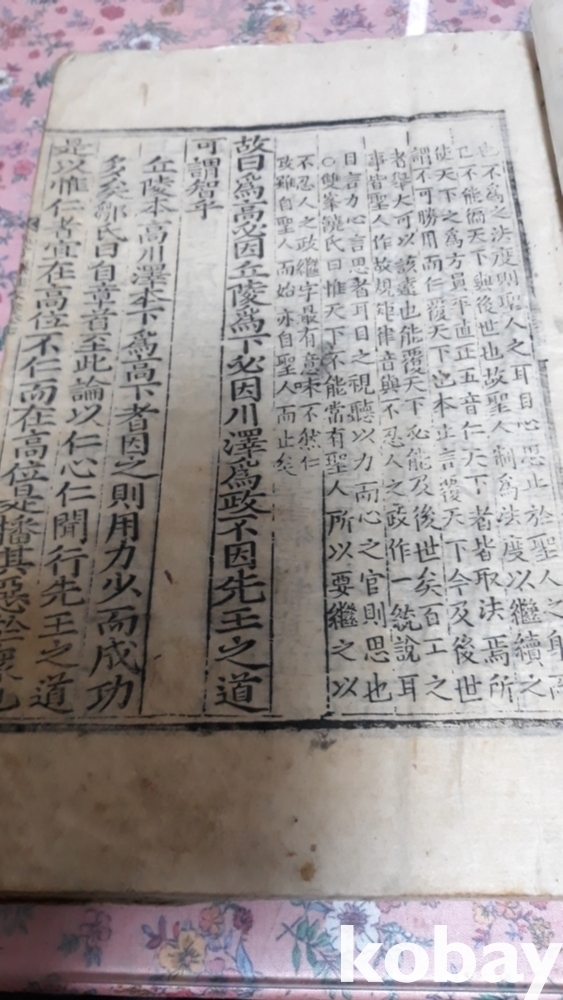 不為之法度則聖人之耳目心思止於聖人之身而
已不能徧天下與後世也故聖人制為法度以繼續之
使天下之為方員平直正五音仁天下者皆取法焉所
謂不可勝用而仁覆天下也本止言覆天下今及後世
者擧大可以該遠也能覆天下必能及後世矣百工之
事皆聖人作故規矩律音與不忍人之政作一統說耳
目言力心言思者耳目之視聽以力而心之官則思也
○雙峯饒氏曰惟天下不能常有聖人所以要繼之以
不忍人之政繼字最有意味不然仁
政雖自聖人而始亦自聖人而止矣
故曰爲高必因丘陵爲下必因川澤爲政不因先王之道
可謂智乎
丘陵本高川澤本下爲高下者因之則用力少而成功
多矣鄒氏曰自章首至此論以仁心仁聞行先王之道
是以惟仁者宜在高位不仁而在高位是播其惡於衆也
kobay